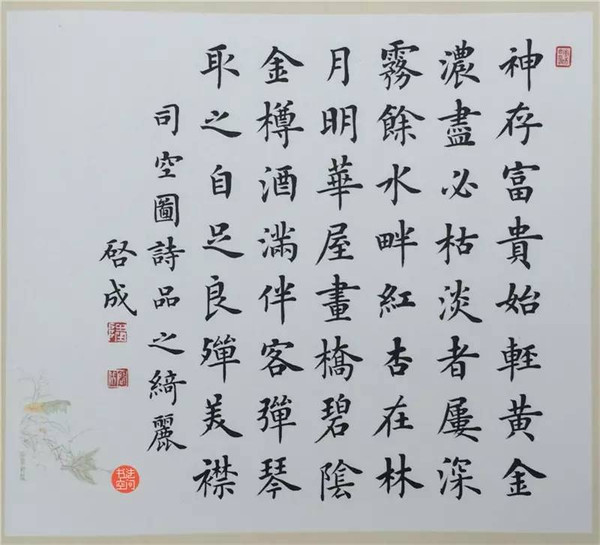 神存富貴始輕黃金
濃盡必枯淡者屢深
霧餘水畔紅杏在林
月明華屋畫橋碧陰
金樽酒滿伴客彈琴
取之自足良殫美襟
司空圖詩品之綺麗
啓成